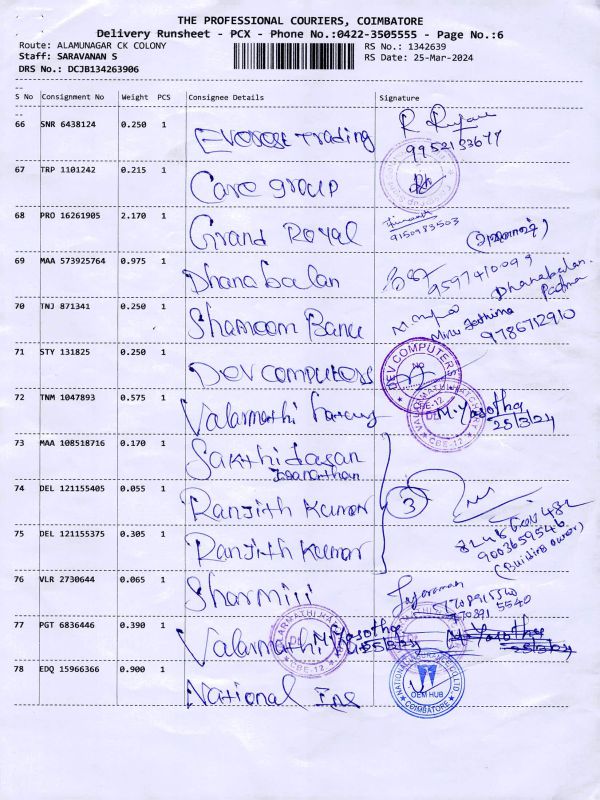 THE PROFESSIONAL COURIERS, COIMBATORE
Delivery Runsheet - PCX - Phone No.:0422-3505555 - Page No.:6
Route: ALAMUNAGAR CK COLONY
RS No.: 1342639
Staff: SARAVANAN S
RS Date: 25-Mar-2024
DRS No.: DCJB134263906
S No Consignment No Weight PCS Consignee Details Signature
66 SNR 6438124 0.250 1 Trading
9952133677
67 TRP 1101242 0.215 1 Care group
68 PRO 16261905 2.170 1 Grand Royal
9150983503
69 MAA 573925764 0.975 1 Dhanabalan
9597410099
Dhanabalan.
Padma
70 TNJ 871341 0.250 1 Shamoom Banu
Minu Fathima
9786712910
71 STY 131825 0.250 1 Dev Computers
DEV COMPUTERS
72 TNM 1047893 0.575 1 Valarmathi
M.Yasotha
25/3/24
CBE-12
73 MAA 108518716 0.170 1 Sakthidasan
Jaganathan
74 DEL 121155405 0.055 1 Ranjith Kumar
3
482
9003659546
(Building owner)
75 DEL 121155375 0.305 1 Ranjith Kumar
76 VLR 2730644 0.065 1 Sharmili
Jayaraman
5540
77 PGT 6836446 0.390 1 Valarmathi
M.Yasotha
25/3/24
CBE-12
M.Yasotha
25/3/24
78 EDQ 15966366 0.900 1 National Ins
OEM HUB
COIMBATORE